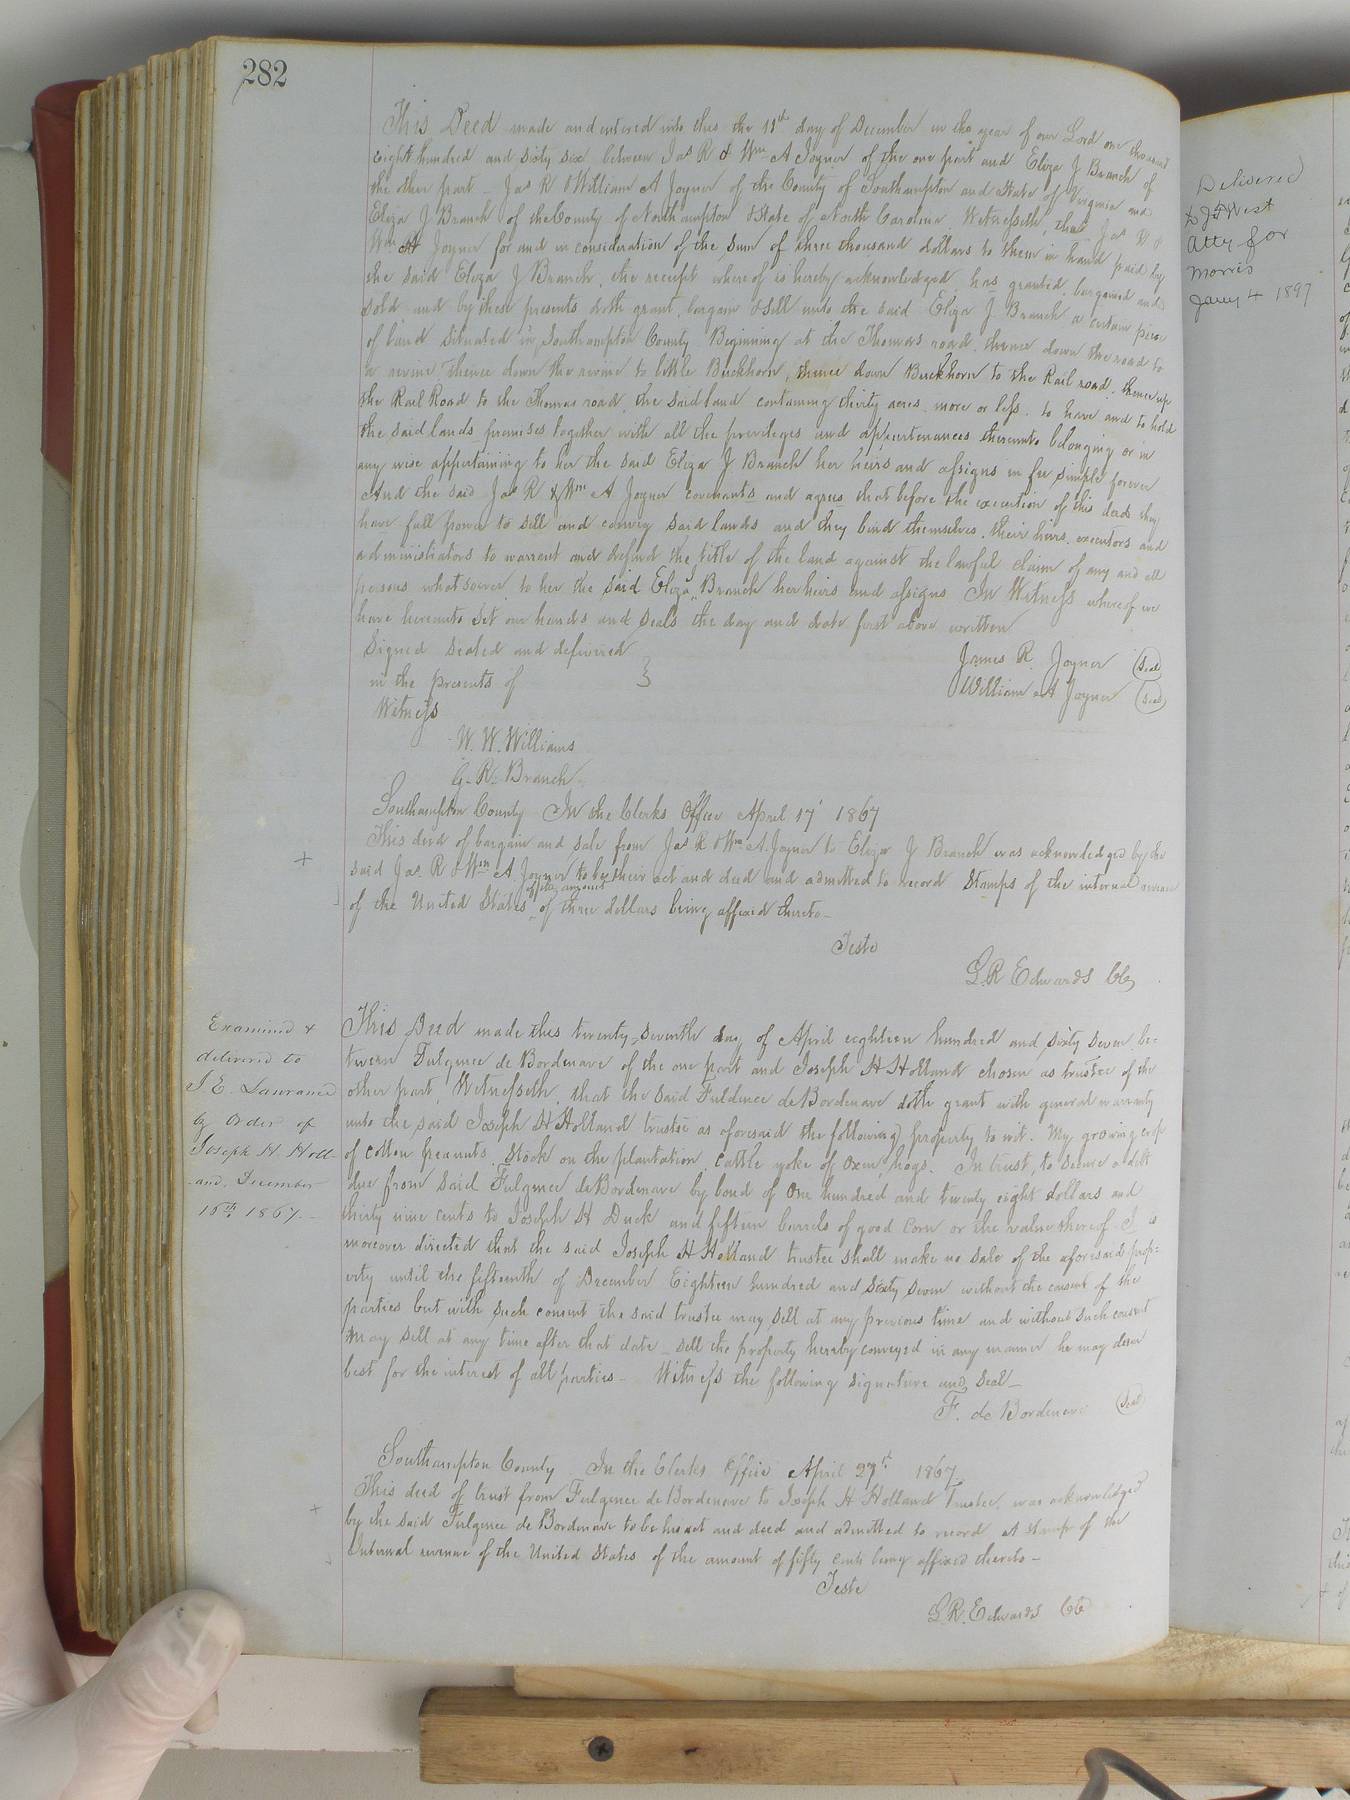 282
This Deed made and entered into this the 11th day of December in the year of our Lord one thousand
eight hundred and sixty six between Jas R & Wm A Joyner of the one part and Eliza J Branch of
the other part _ Jas R & William A Joyner of the County of Southampton and State of Virginia and
Eliza J Branch of the County of Northampton & State of North Carolina Witnesseth, that Jas R &
Wm A Joyner for and in consideration of the sum of three thousand dollars to them in hand paid by
the said Eliza J Branch, the receipt whereof is hereby acknowledged, has granted, bargained and
sold and by these presents doth grant, bargain & sell unto the said Eliza J Branch a certain piece
of land situated in Southampton County Beginning at the Thomas road, thence down the road to
a ravine, thence down the ravine to little Buckhorn, thence down Buckhorn to the Rail road, thence up
the Rail Road to the Thomas road, the said land containing thirty acres more or less. to have and to hold
the said lands premises together with all the privileges and appurtenances thereunto belonging or in
any wise appertaining to her the said Eliza J Branch her heirs and assigns in fee simple forever
And the said Jas R & Wm A Joyner covenants and agrees that before the execution of this deed they
have full power to sell and convey said lands and they bind themselves, their heirs, executors and
administrators to warrant and defend the title of the land against the lawful claim of any and all
persons whatsoever, to her the said Eliza J Branch her heirs and assigns In Witness whereof we
have hereunto set our hands and seals the day and date first above written
Signed Sealed and delivered
in the presents of }
James R. Joyner (Seal)
William A Joyner (Seal)
Witness
W. W. Williams
G. R. Branch
Southampton County In the Clerks Office April 17' 1867
This deed of bargain and sale from Jas R & Wm A. Joyner to Eliza J Branch was acknowledged by the
said Jas. R & Wm A Joyner to be their act and deed and admitted to record Stamps of the internal revenue
of the United States of the amount of three dollars being affixed thereto _
Teste
L. R. Edwards CC
+
Examined &
delivered to
J E. Lawrence
by order of
Joseph H. Holl-
and. December
16th 1867. _
This Deed made this twenty-seventh day of April eighteen hundred and sixty seven, be-
tween Fulgence de Bordenave of the one part and Joseph H Holland chosen as trustee of the
other part, Witnesseth, that the said Fuldence de Bordenave doth grant with general warranty
unto the said Joseph H Holland trustee as aforesaid the following property to wit. My growing crop
of cotton peanuts, stock on the plantation, cattle yoke of oxen, hogs. In trust, to secure a debt
due from said Fulgence de Bordenave by bond of One hundred and twenty eight dollars and
thirty nine cents to Joseph H Duck and fifteen barrels of good corn or the value thereof. It is
moreover directed that the said Joseph H Holland trustee shall make no sale of the aforesaid prop-
erty until the fifteenth of December Eighteen hundred and sixty seven without the consent of the
parties but with such consent the said trustee may sell at any previous time and without such consent
may sell at any time after that date _ sell the property hereby conveyed in any manner he may deem
best for the interest of all parties _ Witness the following signature and seal _
F. de Bordenave (Seal)
Southampton County In the Clerks Office April 27th 1867.
This deed of trust from Fulgence de Bordenave to Joseph H Holland Trustee, was acknowledged
by the said Fulgence de Bordenave to be his act and deed and admitted to record A stamp of the
Internal revenue of the United States of the amount of fifty cents being affixed thereto _
Teste
L. R. Edwards CC
+
Delivered
to J F West
Atty for
Morris
Jany 4 1897